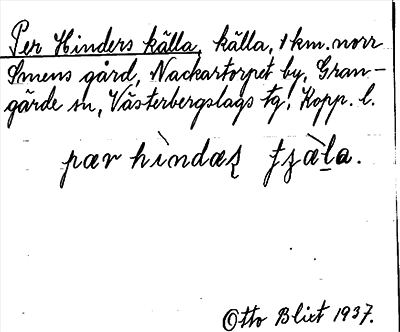 Per Hinders källa, källa, 1 km. norr
Smens gård, Nackartorpet by, Gran-
gärde sn, Västerbergslags tg, Kopp. l.
pær hìndæʂ tʂæ̀la.
Otto Blixt 1937.